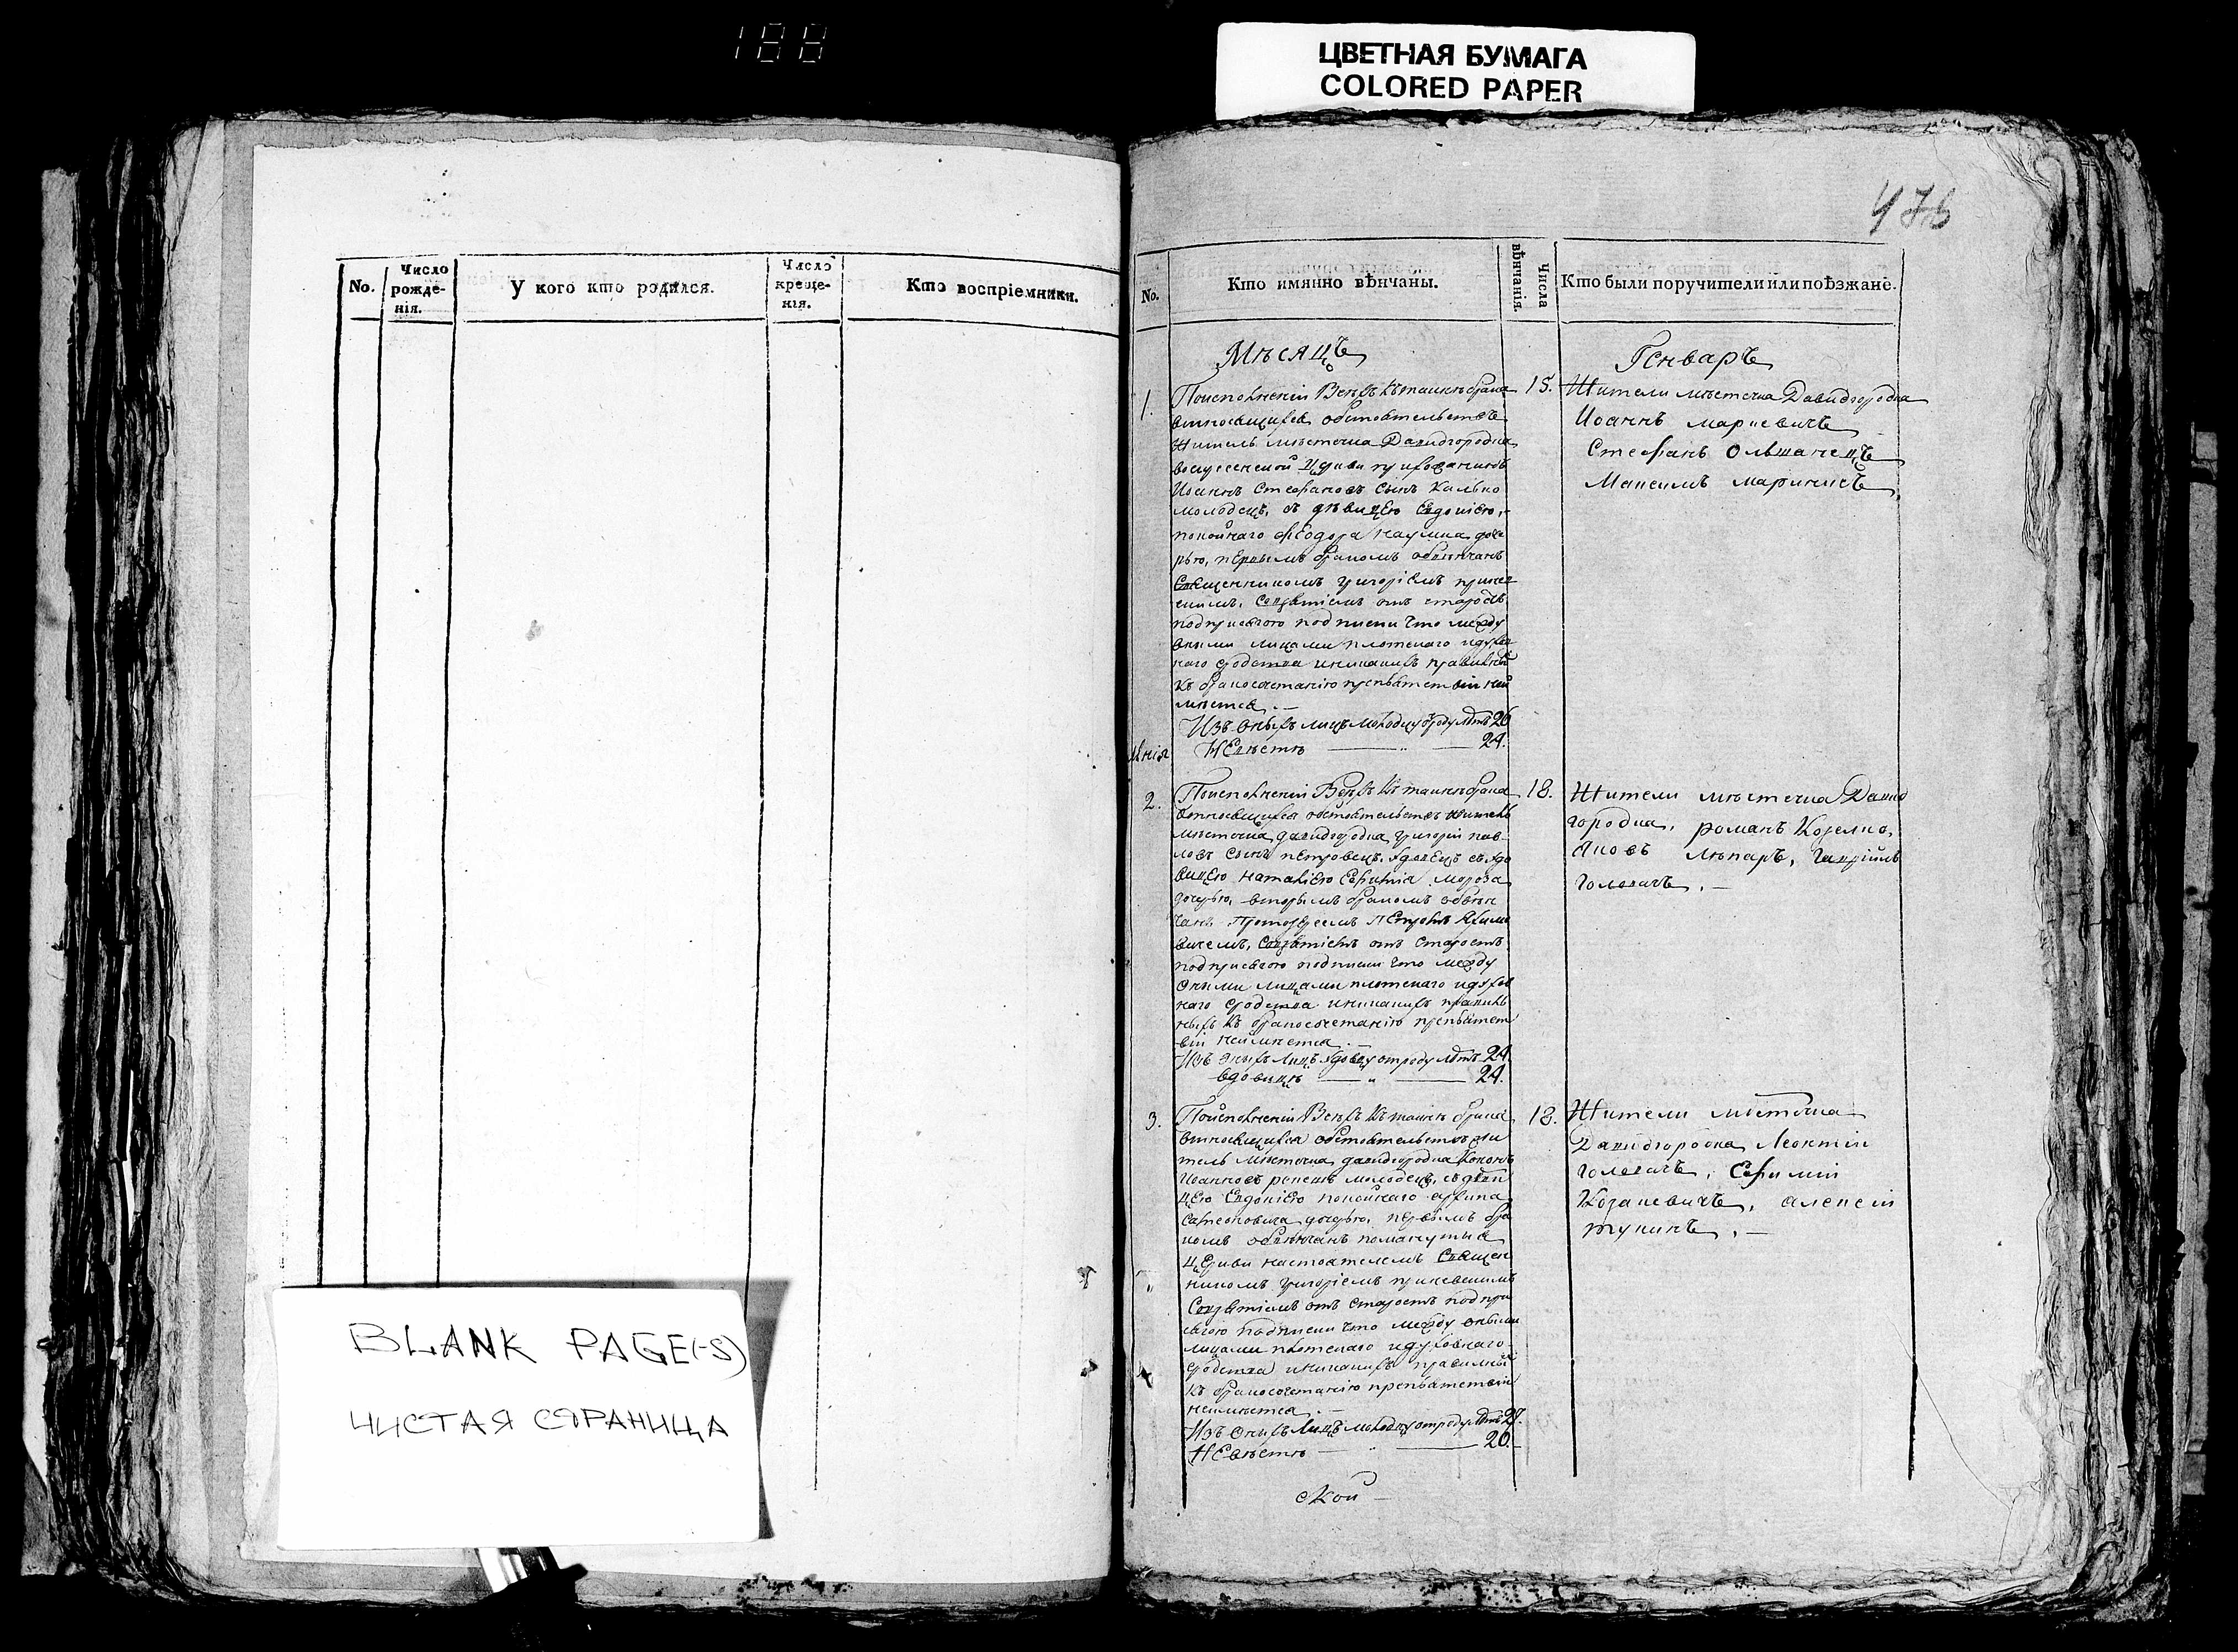 188
ЦВЕТНАЯ БУМАГА
COLORED PAPER
478
No.
Число рожде-нія.
У кого кто родился.
Число креще-нія.
Кто воспріемники.
BLANK PAGE(-S)
ЧИСТАЯ СТРАНИЦА
No.
Кто имянно вѣнчаны.
Числа вѣнчанія
Кто были поручители или поѣзжанѐ.
Мѣсяцъ
Генваръ
1.
По исполненіи Всѣхъ къ таинѣ брака
относящихся обстоятельствъ
Житель мѣстечка Давидгородка
воскресенской Церкви прихожанинъ
Иоаннъ Стефановъ Сынъ Калько
молодецъ, съ дѣвицею Евдокіею,
покойнаго Феодора Наумика доче
рью, первымъ бракомъ обвѣнчанъ
Священникомъ Григоріемъ
Совзятіемъ отъ старостъ
подприсягою подписки что между
оными лицами плотскаго и духов
наго сродства и никакихъ правиль
къ бракосочетанію препятствій неи
мѣется. —
Изъ оныхъ лицъ молодцу отроду лѣтъ 26
Невѣстѣ — „ — 24.
15.
Жители мѣстечка Давидгородка
Иоаннъ Маркевичъ
Стефанъ Ольшанецъ
Максимъ Маричичъ
2.
По исполненіи Всѣхъ къ таинѣ брака
относящихся обстоятельствъ житель
мѣстечка Давидгородка Григорій Пав-
ловъ Сынъ Петровецъ, вдовецъ съ вдо
вицею Наталіею Евфимія Мороза
дочерью, вторымъ бракомъ обвѣн
чанъ Протоіереемъ Петромъ
Совзятіемъ отъ Старостъ
подприсягою подписки что между
Оными лицами плотскаго и духов
наго сродства и никакихъ правиль
ныхъ къ бракосочетанію препятст
вій неимѣется. —
Изъ оныхъ лицъ вдовцу отроду лѣтъ 24.
вдовицѣ — „ — 24.
18.
Жители мѣстечка Давид
городка, Романъ Козелко,
Яковъ Лѣкаръ, Гавріилъ
Головачъ. —
3.
По исполненіи Всѣхъ къ таинѣ брака
относящихся обстоятельствъ жи
тель мѣстечка Давидгородка Кононъ
Иоанновъ молодецъ, съ дѣви
цею Евдокіею покойнаго
дочерью, первымъ бра
комъ обвѣнчанъ помянутыя
Церкви настоятелемъ Священ
никомъ Григоріемъ
Совзятіемъ отъ Старостъ подпри
сягою подписки что между оными
лицами плотскаго и духовнаго
сродства и никакихъ правилны
къ бракосочетанію препятствій
неимѣется. —
Изъ оныхъ Лицъ молодцу отроду лѣтъ 27.
Невѣстѣ — „ — 20.
18.
Жители мѣстечка
Давидгородка Леонтій
Головачъ, Евфимій
Козакевичъ, Алексій
Тукинъ. —
ской